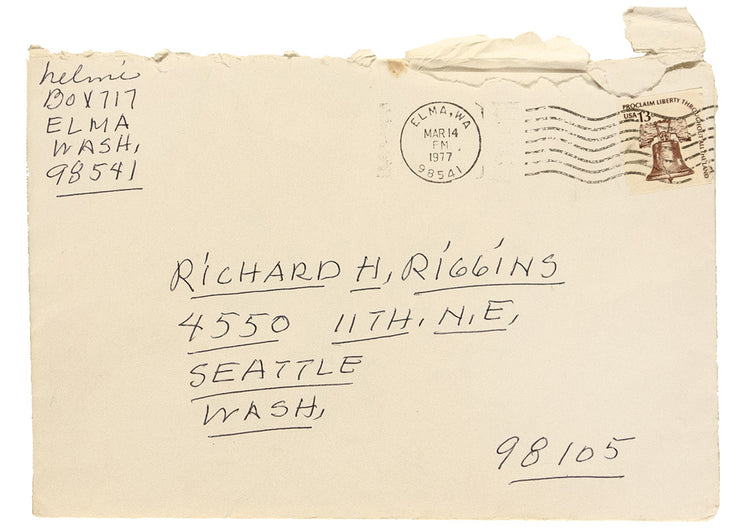 helmi
BOX 717
ELMA
WASH,
98541
ELMA, WA
MAR 14
PM
1977
98541
PROCLAIM LIBERTY THROUGHOUT ALL THE LAND
USA 13
RICHARD H, RIGGINS
4550 11TH. N.E,
SEATTLE
WASH,
98105